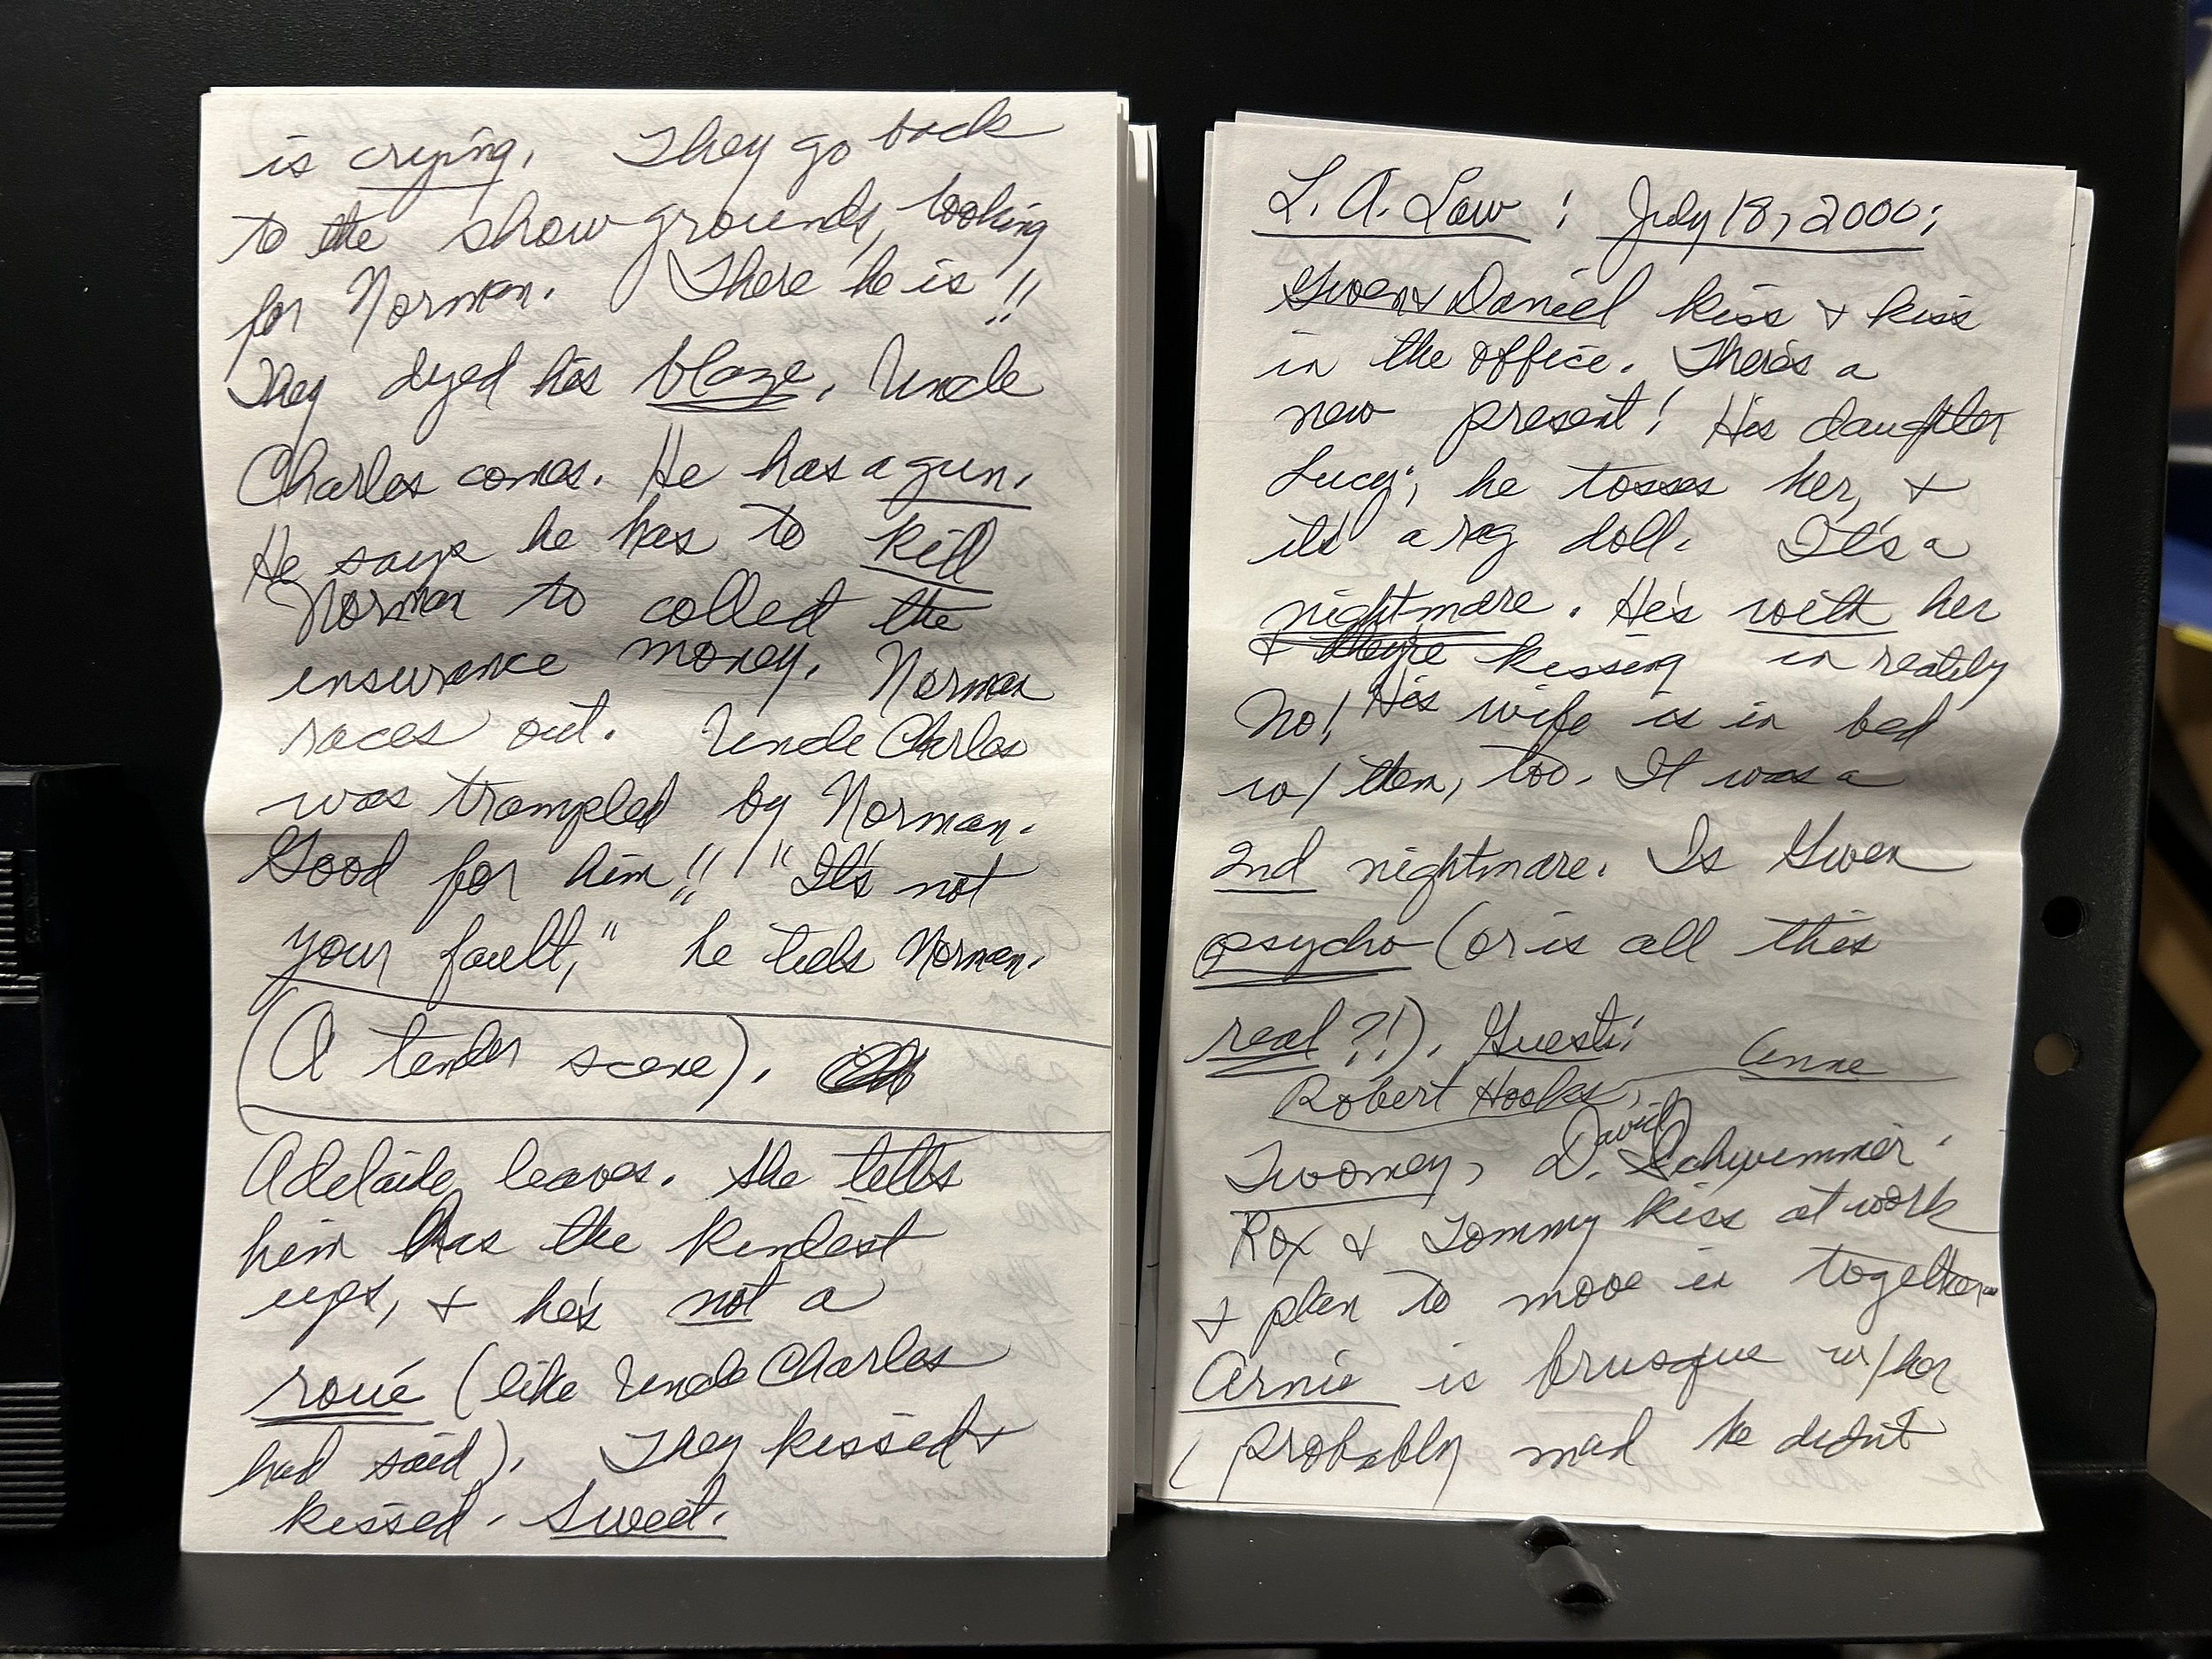 is crying. They go back
to the showgrounds, looking
for Norman. There he is!!
They dyed his blaze. Uncle
Charles comes. He has a gun.
He says he has to kill
Norman to collect the
insurance money. Norman
races out. Uncle Charles
was trampled by Norman.
Good for him!! "It's not
your fault," he tells Norman.
(A tender scene).
Adelaide leaves. She tells
him has the kindest
eyes, & he's not a
roué (like Uncle Charles
had said). They kissed &
kissed. Sweet.
L.A. Law: July 18, 2000:
Gwen & Daniel kiss & kiss
in the office. There's a
new present! His daughter
Lucy; he tosses her, &
it's a rag doll. It's a
nightmare. He's with her
& they're kissing in reality
No! His wife is in bed
w/ them, too. It was a
2nd nightmare. Is Gwen
psycho (or is all this
real?!). Guest: Anne
Robert Hooks,
Twomey, D. David Schwimmer.
Rox & Tommy kiss at work
& plan to move in together
Arnie is brusque w/her
(probably mad he didn't